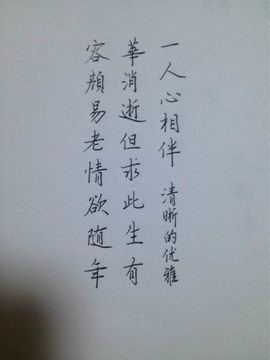 容顏易老情欲随年
華消逝但求此生有
一人心相伴 清晰的优雅